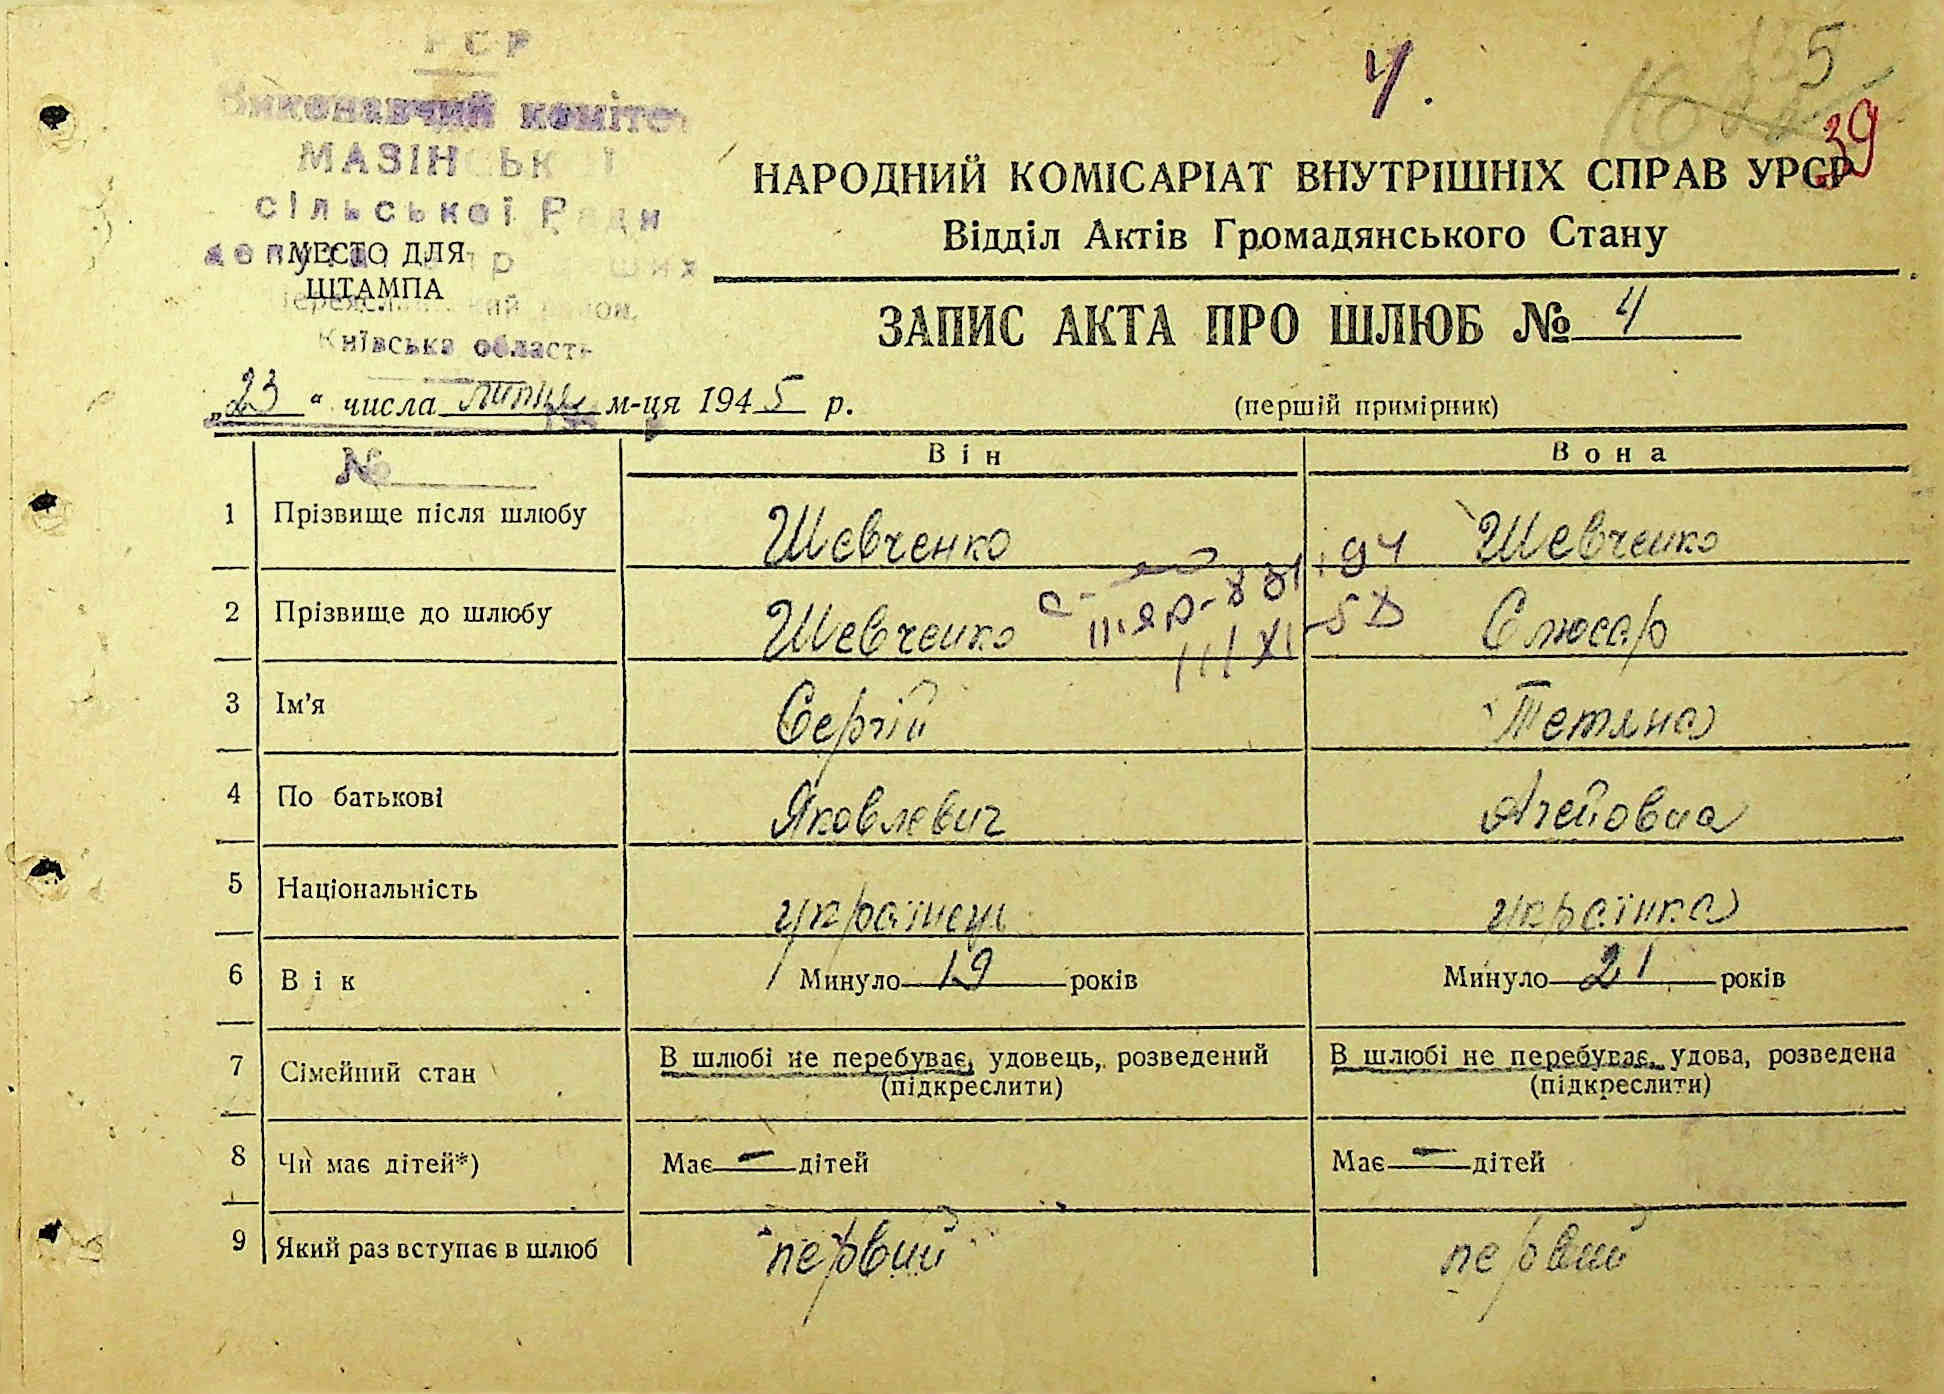 РСР
Виконавчий комітет
МАЗІНСЬКОЇ
сільської Ради
МЕСТО ДЛЯ
ШТАМПА
Київська область
4.
5
39
НАРОДНИЙ КОМІСАРІАТ ВНУТРІШНІХ СПРАВ УРСР
Відділ Актів Громадянського Стану
ЗАПИС АКТА ПРО ШЛЮБ № 4
„23“ числа липня м-ця 1945 р.
(першій примірник)
№
Він Вона
1 Прізвище після шлюбу Шевченко Шевченко
2 Прізвище до шлюбу Шевченко Слюсар
3 Ім'я Сергій Тетяна
4 По батькові Яковлевич Агейовна
5 Національність українець українка
6 Вік Минуло 19 років Минуло 21 років
7 Сімейний стан В шлюбі не перебуває, удовець, розведений В шлюбі не перебуває, удова, розведена
(підкреслити) (підкреслити)
8 Чи має дітей*) Має — дітей Має — дітей
9 Який раз вступає в шлюб первий первий